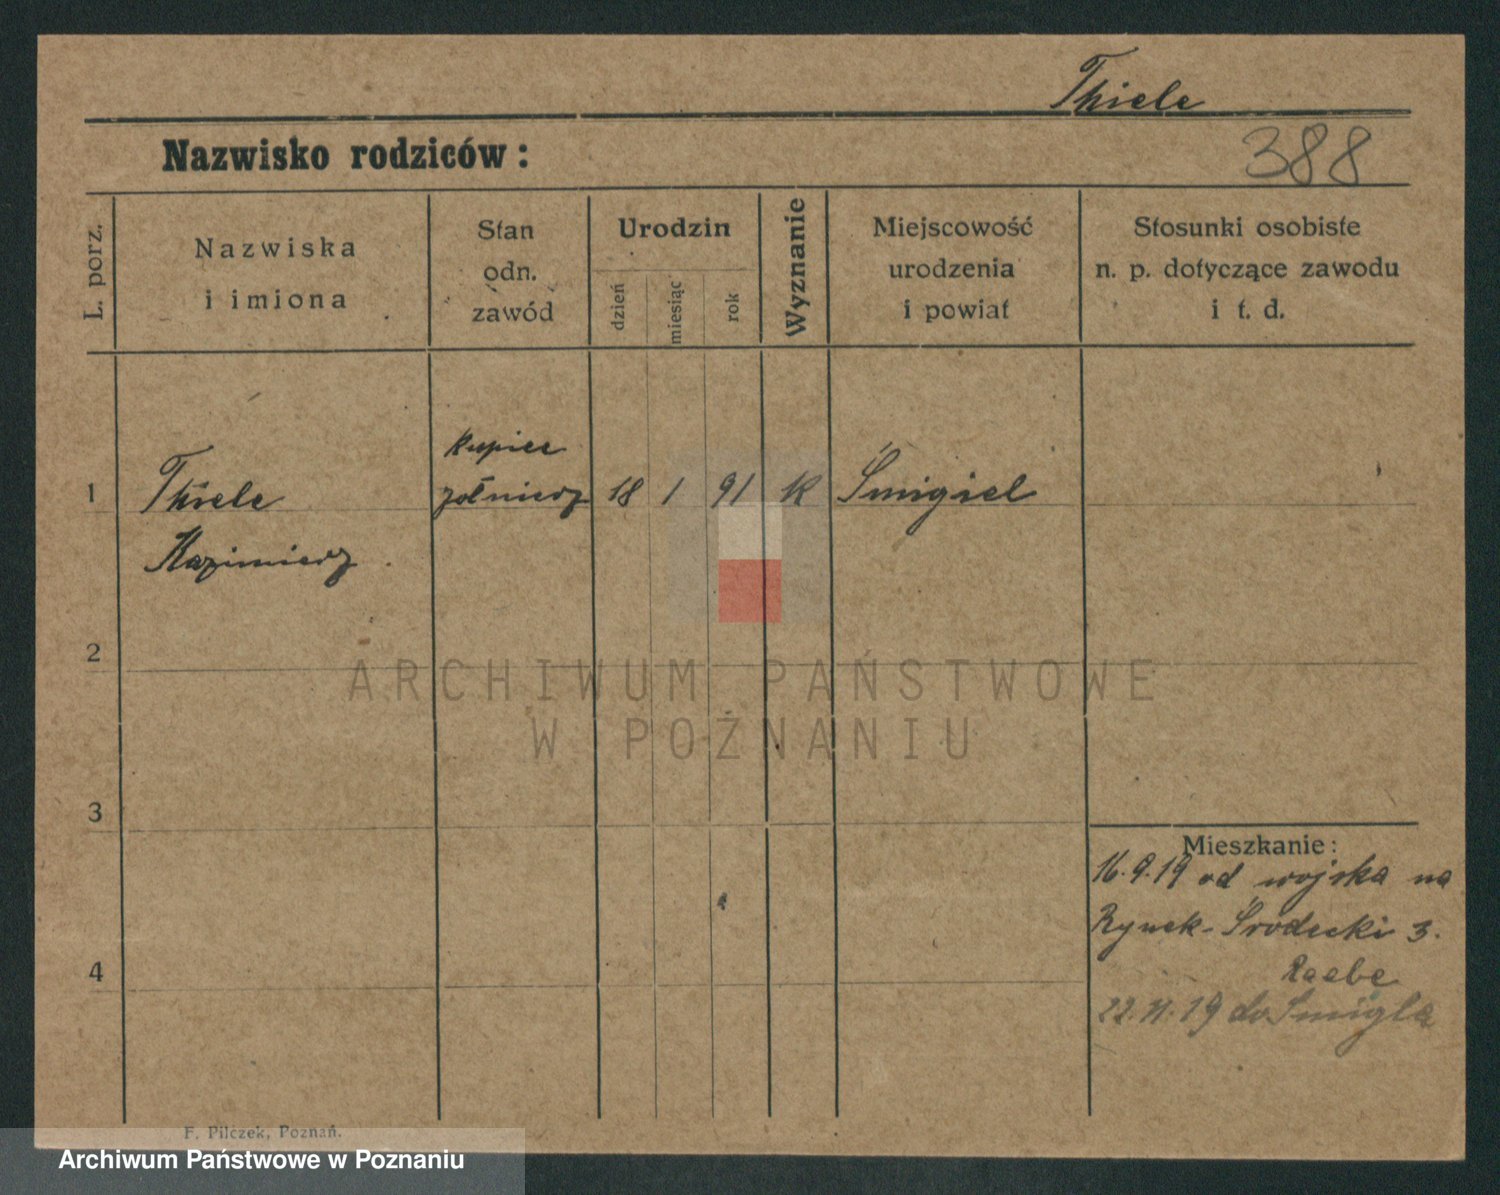 Thiele
Nazwisko rodziców:
388
L. porz.
Nazwiska
i imiona
Stan
odn.
zawód
Urodzin
dzień
miesiąc
rok
Wyznanie
Miejscowość
urodzenia
i powiat
Stosunki osobiste
n. p. dotyczące zawodu
i t. d.
1
Thiele
Kazimierz
kupiec
żołnierz
18
1
91
K
Śmigiel
2
ARCHIWUM PAŃSTWOWE
W POZNANIU
3
Mieszkanie:
16.9.19 od wojska na
Rynek-Środecki 3.
Raabe
4
22.11.19 do Śmigla
F. Pilczek, Poznań.
Archiwum Państwowe w Poznaniu